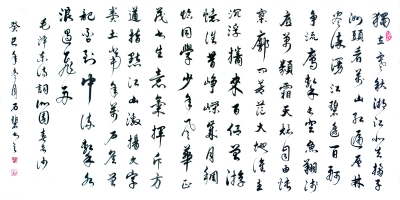 獨立寒秋湘江北去橘子
洲頭看萬山紅遍層林
盡染漫江碧透百舸
爭流鷹擊長空魚翔淺
底萬類霜天競自由悵
寥廓問蒼茫大地誰主
沉浮攜來百侶曾游
憶往昔崢嶸歲月稠
恰同學少年風華正
茂書生意氣揮斥方
遒指點江山激揚文字
糞土當年萬户侯曾
記否到中流擊水
浪遏飛舟
毛澤東詩詞沁園春長沙
癸巳年冬月石碧